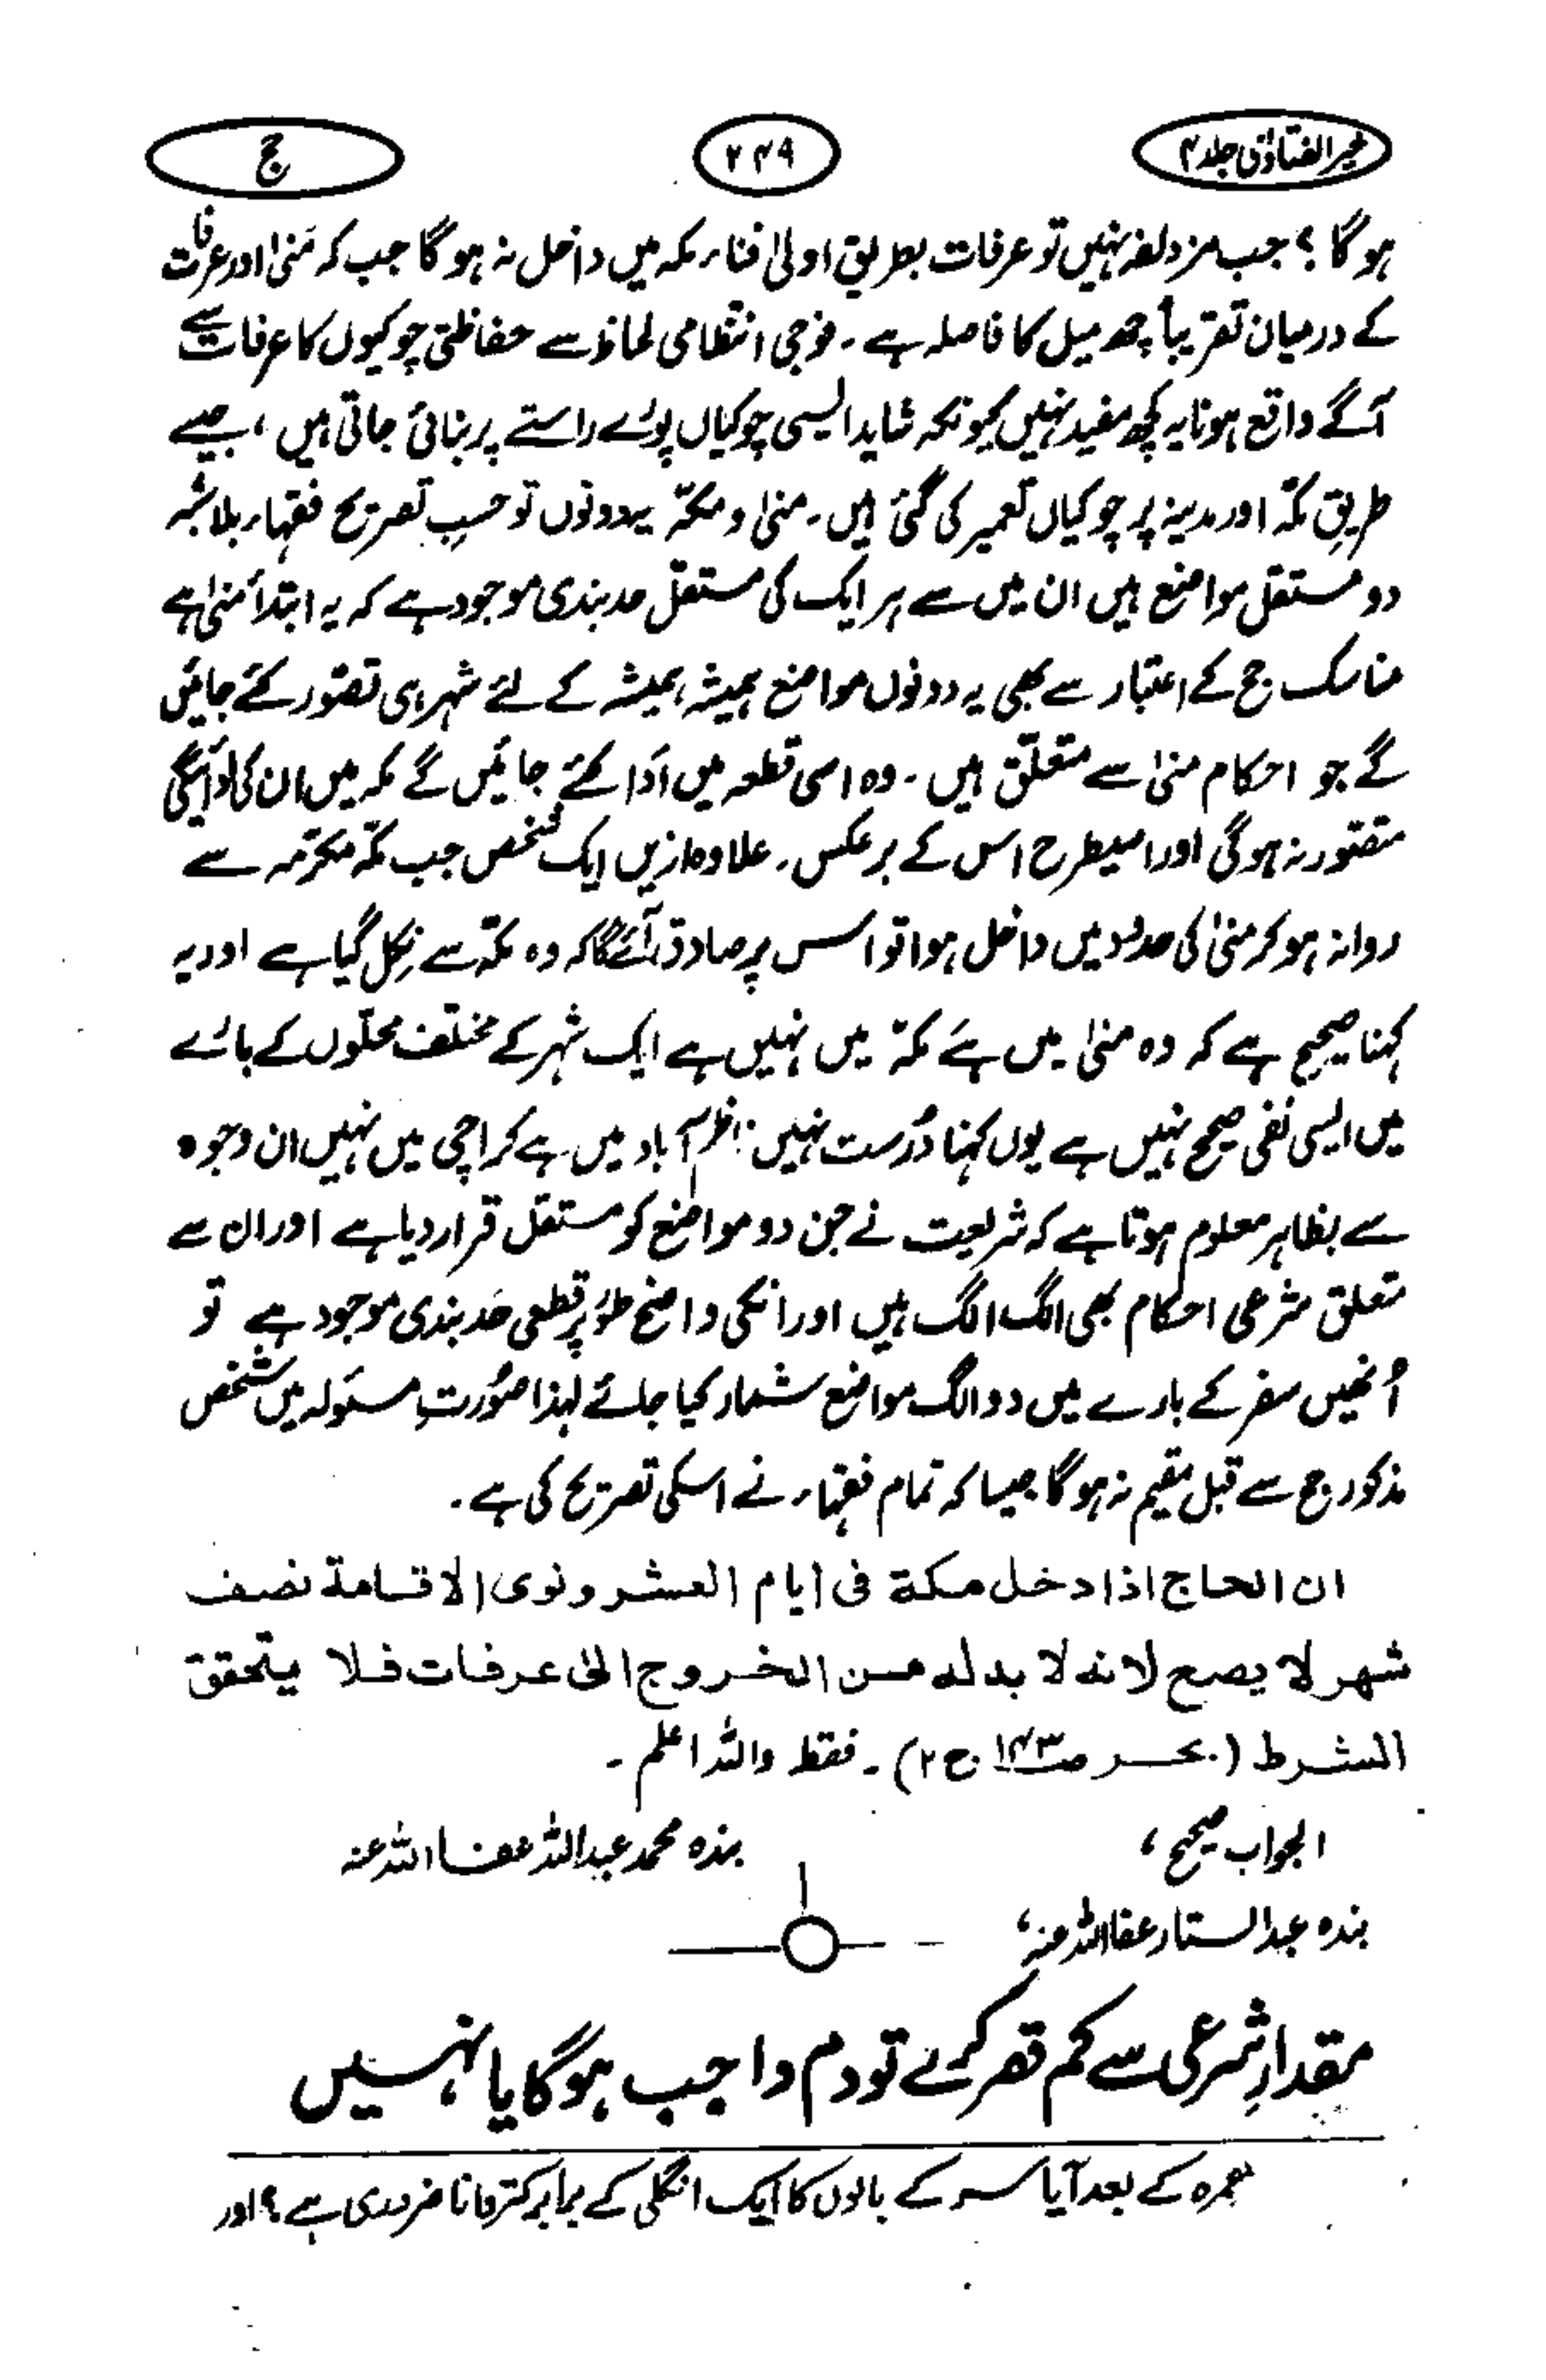 خیر الفتاویٰ جلد ۴
۲۴۹
حج
ہوگا؟ جب مزدلفہ نہیں تو عرفات بطریق اولیٰ فناء مکہ میں داخل نہ ہوگا جب کہ مَنیٰ اور عرفات
کے درمیان تقریباً چھ میل کا فاصلہ ہے۔ فوجی انتظامی لحاظ سے حفاظتی چوکیوں کا عرفات سے
آگے واقع ہونا یہ کچھ مفید نہیں کیونکہ شاید ایسی چوکیاں پورے راستے پر بنائی جاتی ہیں، جیسے
طریقِ مکہ اور مدینہ پر چوکیاں تعمیر کی گئی ہیں۔ منیٰ و مکہّ یہ دونوں تو حسبِ تصریح فقہاء بلاشبہ
دو مستقل مواضع ہیں ان میں سے ہر ایک کی مستقل حد بندی موجود ہے کہ یہ ابتداً منیٰ ہے
مناسک حج کے اعتبار سے بھی یہ دونوں مواضع ہمیشہ ہمیشہ کے لئے شہر ہی تصوّر کئے جائیں
گے جو احکام منیٰ سے متعلّق ہیں۔ وہ اسی قطعہ میں اَدا کئے جائیں گے مکہ میں ان کی ادائیگی
متصّور نہ ہوگی اور اسیطرح اس کے برعکس۔ علاوہ ازیں ایک شخص جب مکّہ مکرّمہ سے
روانہ ہو کر منیٰ کی حدود میں داخل ہوا تو اس پر صادق آئے گا کہ وہ مکہّ سے نِکل گیا ہے اور یہ
کہنا صحیح ہے کہ وہ منیٰ میں ہے مکہّ میں نہیں ہے ایک شہر کے مختلف محلّوں کے بارے
میں ایسی نفی صحیح نہیں ہے یوں کہنا دُرست نہیں: ناظم آباد میں ہے کراچی میں نہیں ان وجوہ
سے بظاہر معلوم ہوتا ہے کہ شریعت نے جن دو مواضع کو مستقل قرار دیا ہے اور ان سے
متعلق شرعی احکام بھی الگ الگ ہیں اور انکی واضح طور پر قطعی حَد بندی موجود ہے تو
اُنھیں سفر کے بارے میں دو الگ مواضع شمار کیا جائے لہٰذا صورتِ مسئولہ میں شخص
مذکور حج سے قبل مقیم نہ ہوگا جیسا کہ تمام فقہاء نے اسکی تصریح کی ہے۔
ان الحاج اذا دخل مكة فى ايام العشر ونوى الاقامة نصف
شهر لا يصح لانه لا بد له من الخروج الى عرفات فلا يتحقق
الشرط (بحر ص۱۴۳ ج۲)۔ فقط واللہ اعلم۔
الجواب صحیح،
بندہ محمد عبداللہ عفا اللہ عنہ
بندہ عبدالستار عفا اللہ عنہ،
مقدارِ شرعی سے کم قصر کرے تو دم واجب ہوگا یا نہیں
عمرہ کے بعد آیا سر کے بالوں کا ایک انگلی کے برابر کتروانا ضروری ہے؟ اور